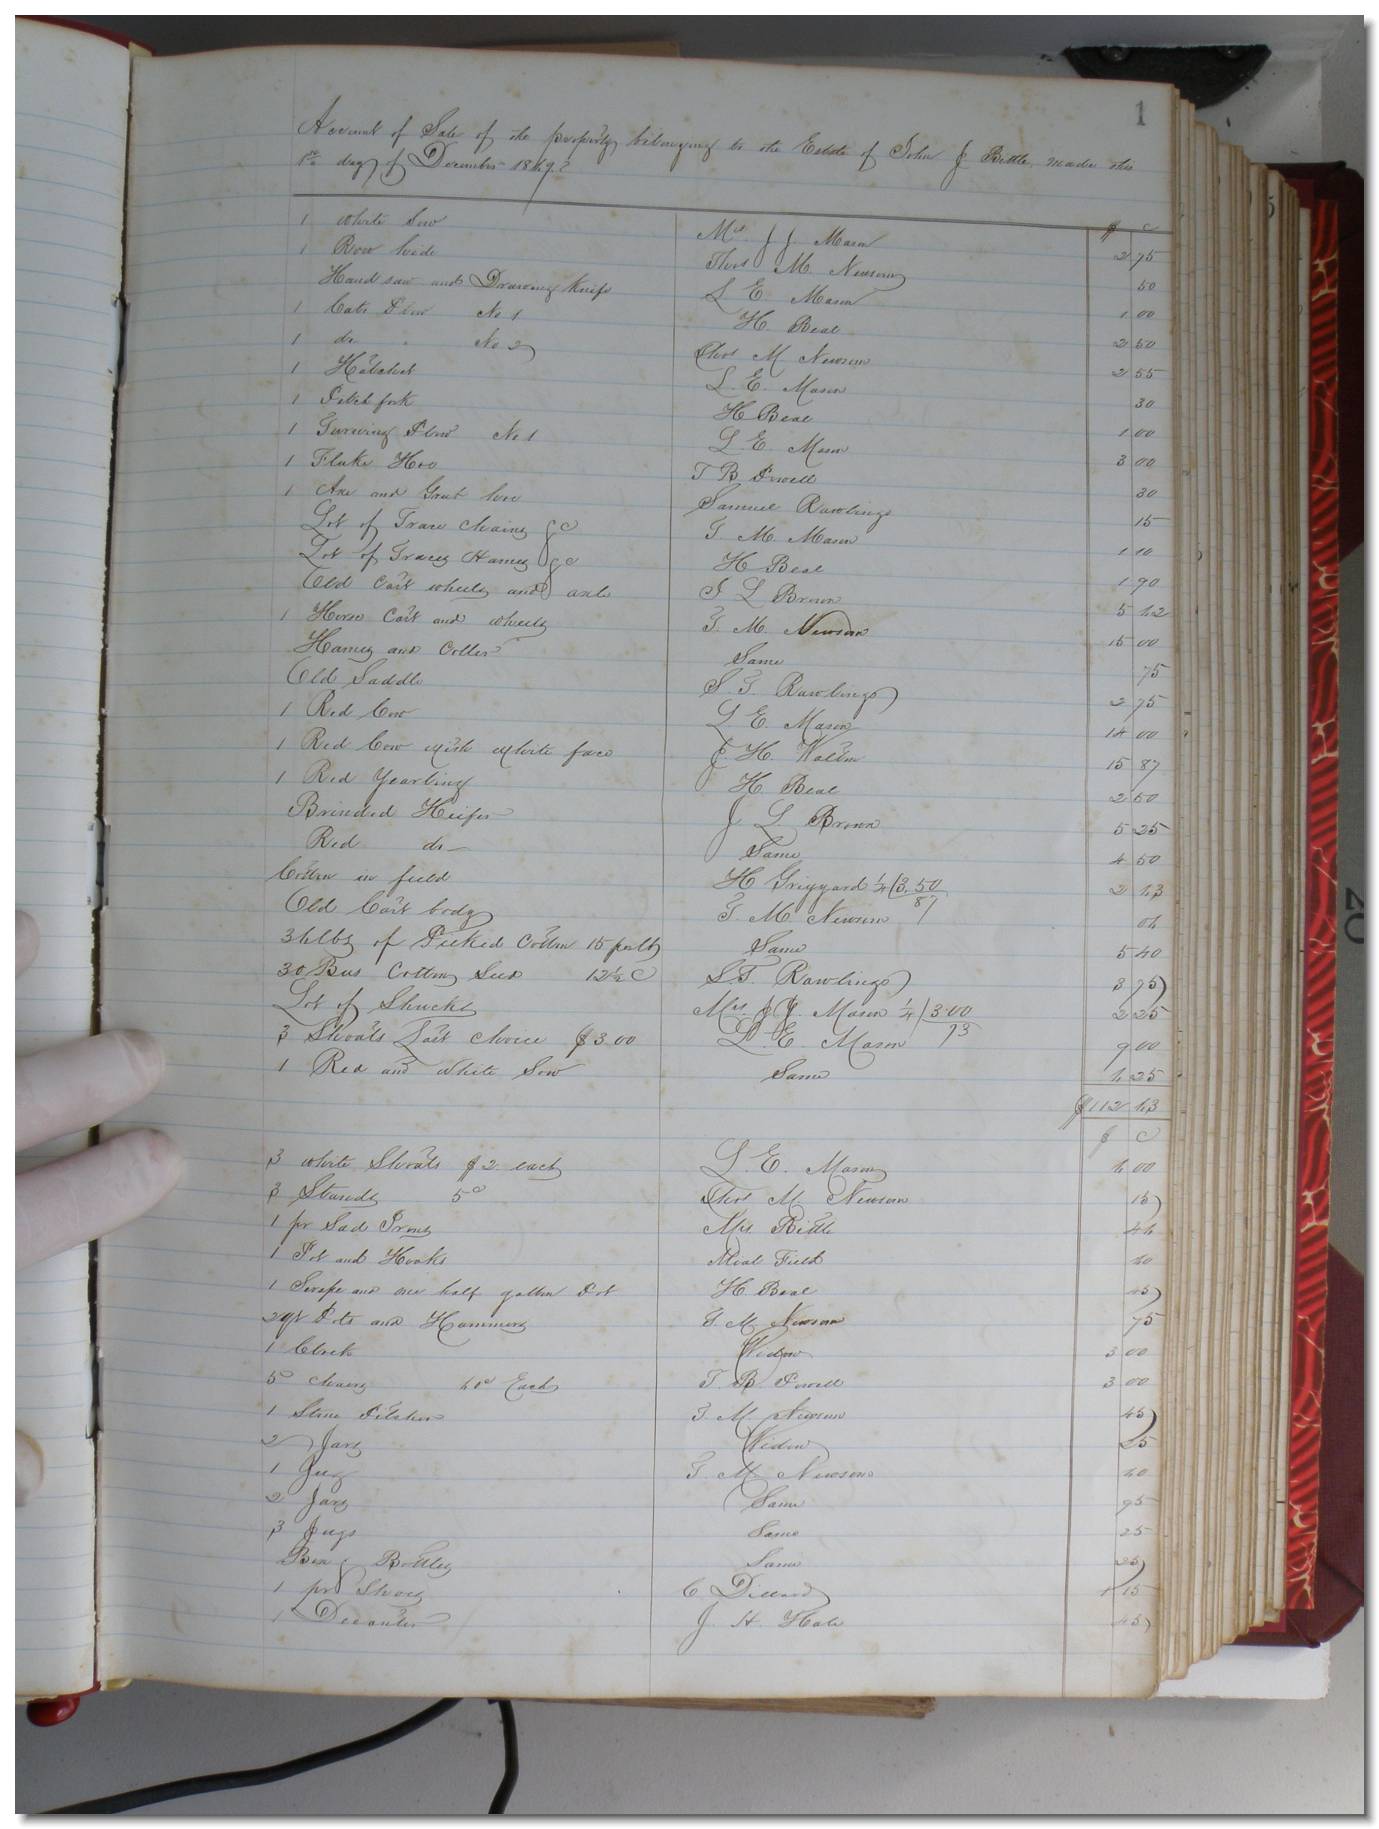 1
Account of Sale of the property belonging to the Estate of John J Bittle made this
day of December 1869
$ c
1 White Sow Mrs J J Mason 2 75
1 Raw hide Thos M Newsom 50
Hand saw and Drawing Knife L E Mason 1 00
1 Cats Plow No 1 H Beal 2 50
1 do " No 2 Thos M Newsom 2 55
1 Hatchet L. E. Mason 30
1 Pitch fork H Beal 1 00
1 Turning Plow No 1 L E Mason 3 00
1 Fluke Hoe T B Powell 30
1 Axe and Grub hoe Samuel Rawlings 15
Lot of Trace chains &c T. M. Mason 1 10
Lot of Traces Hames &c H Beal 1 90
Old Cart wheels and axle J L Brown 5 62
1 Horse Cart and wheels T. M. Newsom 15 00
Hames and Coller Same 75
Old Saddle S. T. Rawlings 2 75
1 Red Cow L E. Mason 14 00
1 Red Cow with white face J. H. 15 87
1 Red Yearling H. Beal 2 50
Brinded Heifer J L Brown 5 25
Red do Same 4 50
Cotton in field H Griggard 1/4 | 3.50 2 63
87
Old Cart body T M Newsom 06
36 lbs of Picked Cotton 15 per lb Same 5 40
30 Bus Cotton Seed 12½ C S. T. Rawlings 3 75
Lot of Shucks Mrs. J J. Mason 1/4 | 3.00 2 25
75
3 Shoats Last choice $3.00 L. E. Mason 9 00
1 Red and White Sow Same 6 25
$112 63
$ C
3 white Shoats $2 each L. E. Mason 6 00
3 Stands 5c Thos M. Newsom 15
1 pr Sad Irons Mrs. Bittle 46
1 Pot and Hooks Field 20
1 and one half gallon Pot H Beal 45
2 qt Pots and Hammers T. M. Newsom 75
1 Clock Widow 3 00
5 chairs 60c Each T. B. Powell 3 00
1 Stone Pitcher T. M. Newsom 45
2 Jars Widow 25
1 Jug T. M. Newsom 20
2 Jars Same 95
3 Jugs Same 25
Box & Bottles Same 25
1 pr Shoes C Dillard 1 15
1 Decanter J. H. Hale 45